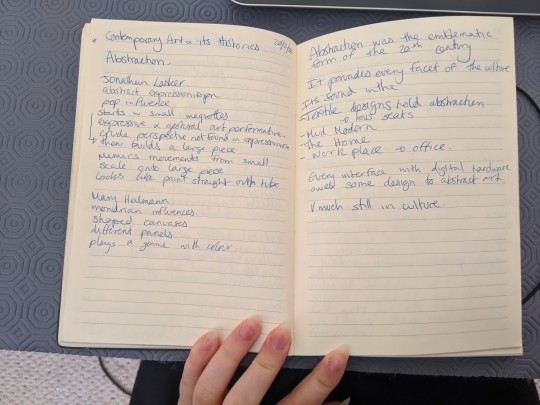 * Contemporary Art & its Histories.
Abstraction.
Jonathan Lasker
abstract expressionism
pop influence
starts w small maquettes
expressive & gestural art performative
crude perspective not found in expressionism
then builds a large piece
mimics movements from small
scale onto large piece
looks like paint straight outta tube
Mary Heilmann
mondrian influences
shaped canvases
different panels
plays a game with colour
Abstraction was the emblematic
form of the 20th century
It pervades every facet of the culture
Its found in the
Textile designs hold abstraction
→ bus seats
- Mid Modern
- The Home
- Work place → office.
Every interface with digital hardware
owes some design to abstract art
V much still in culture